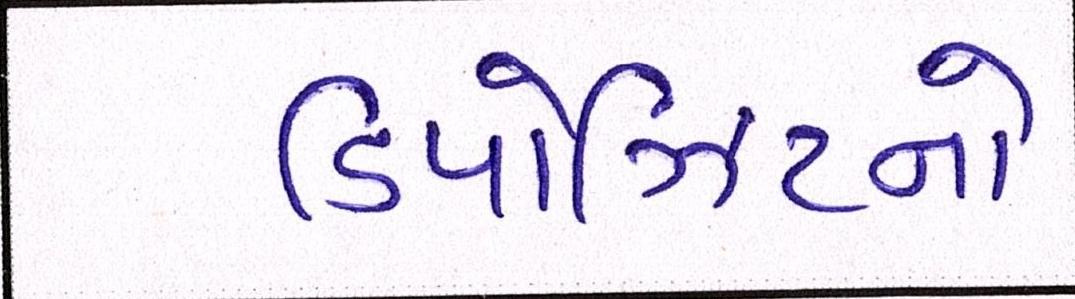 ડિપોઝિટનો